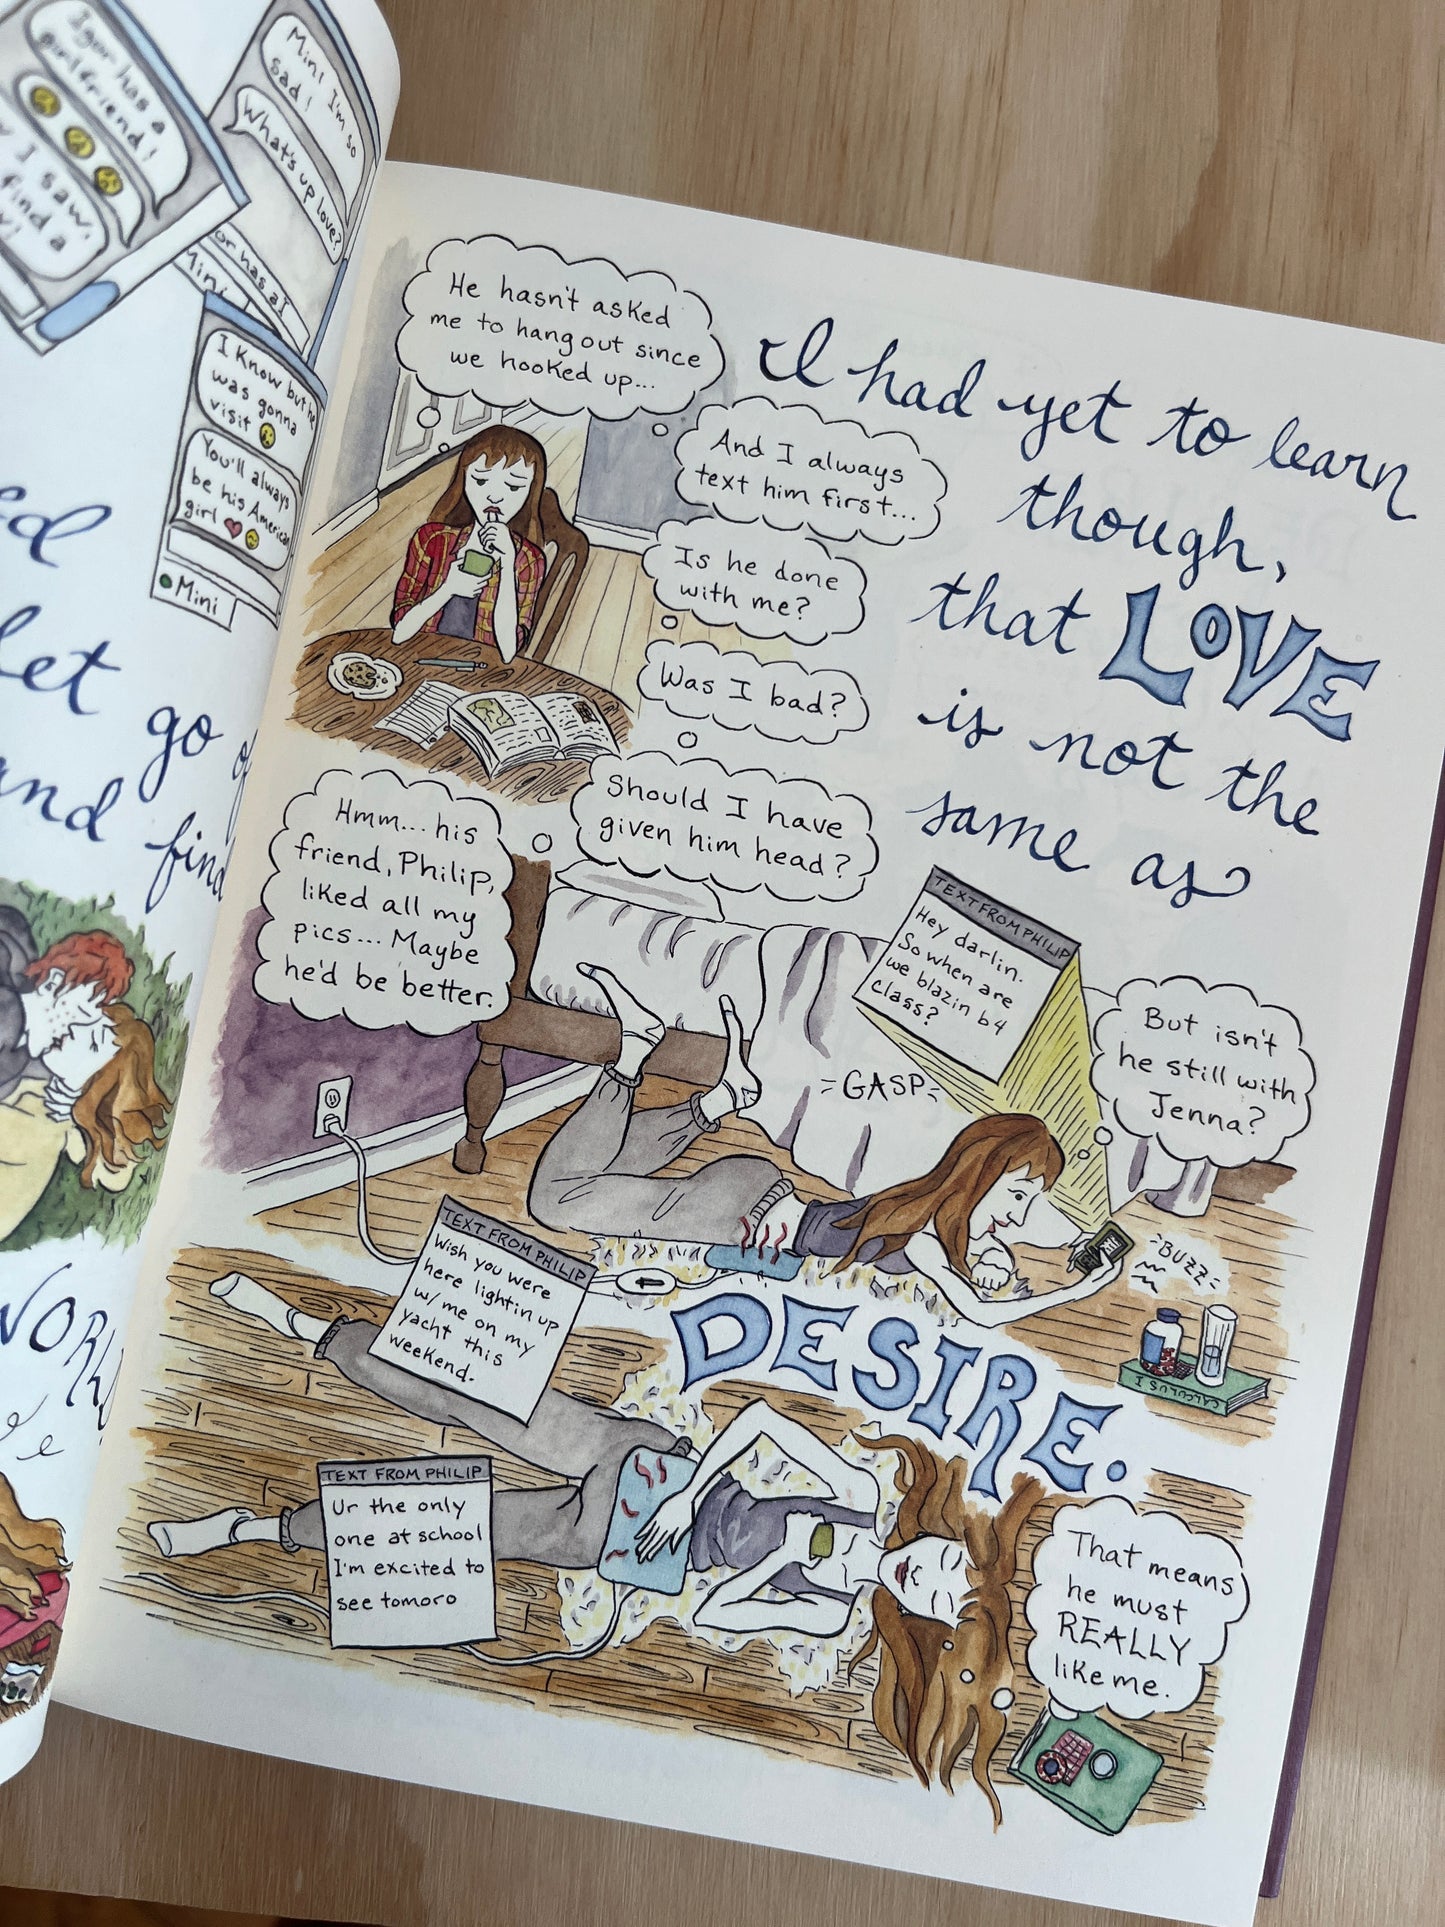 Igor has a
girlfriend!
I saw,
find a
Mini I'm so
sad!
What's up love?
or has a I
Mini
I know but he
was gonna
visit
You'll always
be his American
girl
Mini
ed
let go of
and find
WORK
He hasn't asked
me to hang out since
we hooked up...
And I always
text him first...
Is he done
with me?
Was I bad?
Should I have
given him head?
Hmm... his
friend, Philip,
liked all my
pics... Maybe
he'd be better.
I had yet to learn
though,
that LOVE
is not the
same as
TEXT FROM PHILIP
Hey darlin.
So when are
we blazin b4
class?
=GASP=
But isn't
he still with
Jenna?
=BUZZ=
CALCULUS I
DESIRE.
TEXT FROM PHILIP
Wish you were
here lightin up
w/ me on my
yacht this
weekend.
TEXT FROM PHILIP
Ur the only
one at school
I'm excited to
see tomoro
2
That means
he must
REALLY
like me.